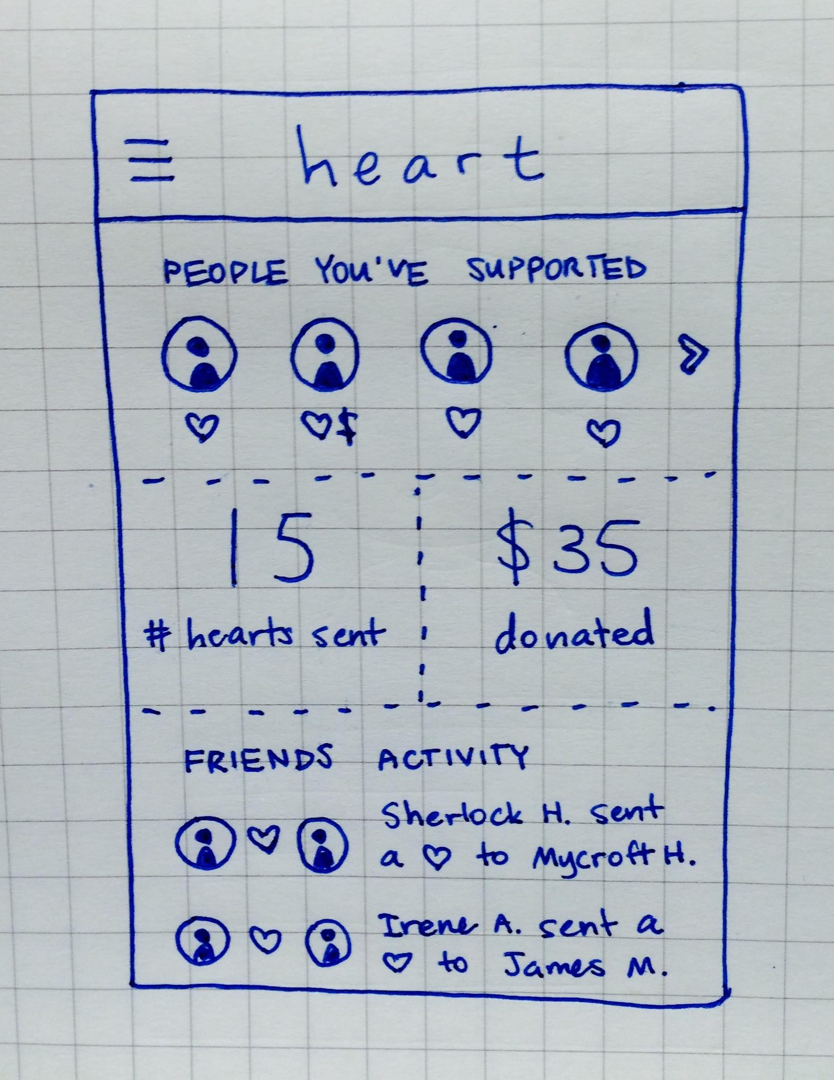 heart
PEOPLE YOU'VE SUPPORTED
♡ ♡$ ♡ ♡
15 $35
# hearts sent donated
FRIENDS ACTIVITY
Sherlock H. sent
a ♡ to Mycroft H.
Irene A. sent a
♡ to James M.